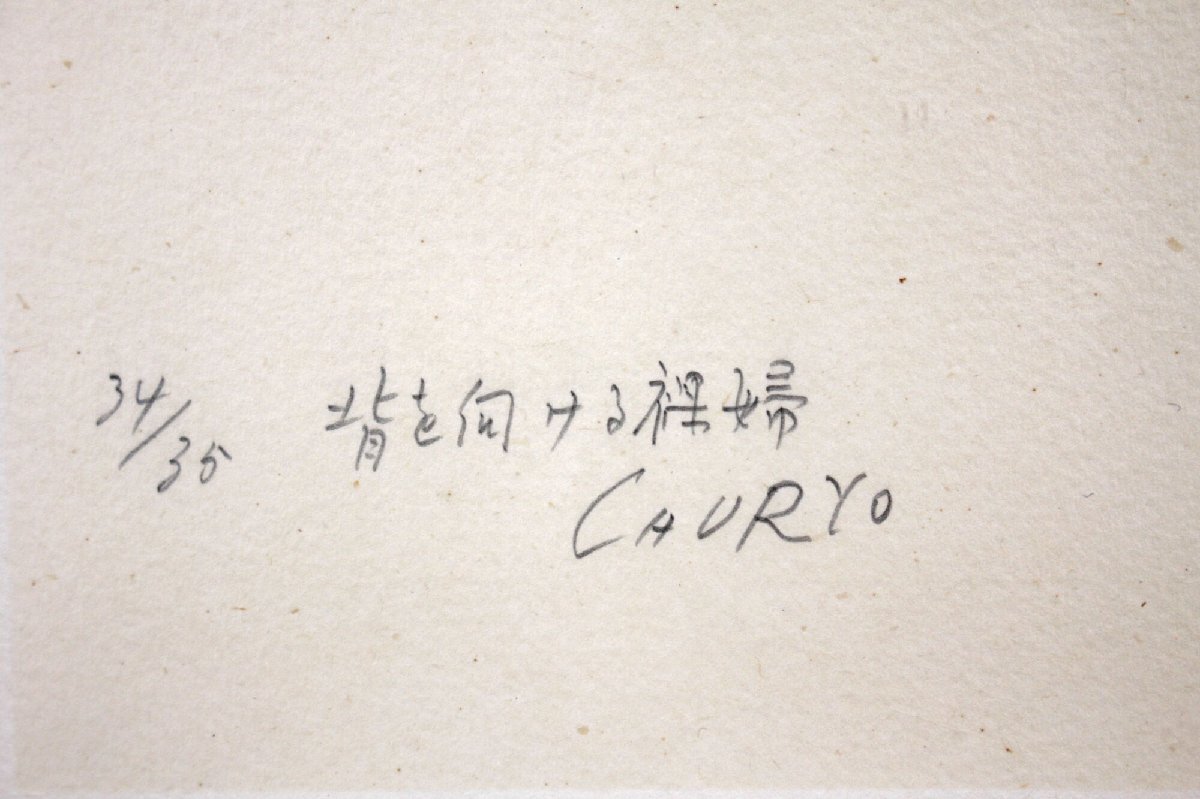 34/35 背を向ける裸婦
CHURYO